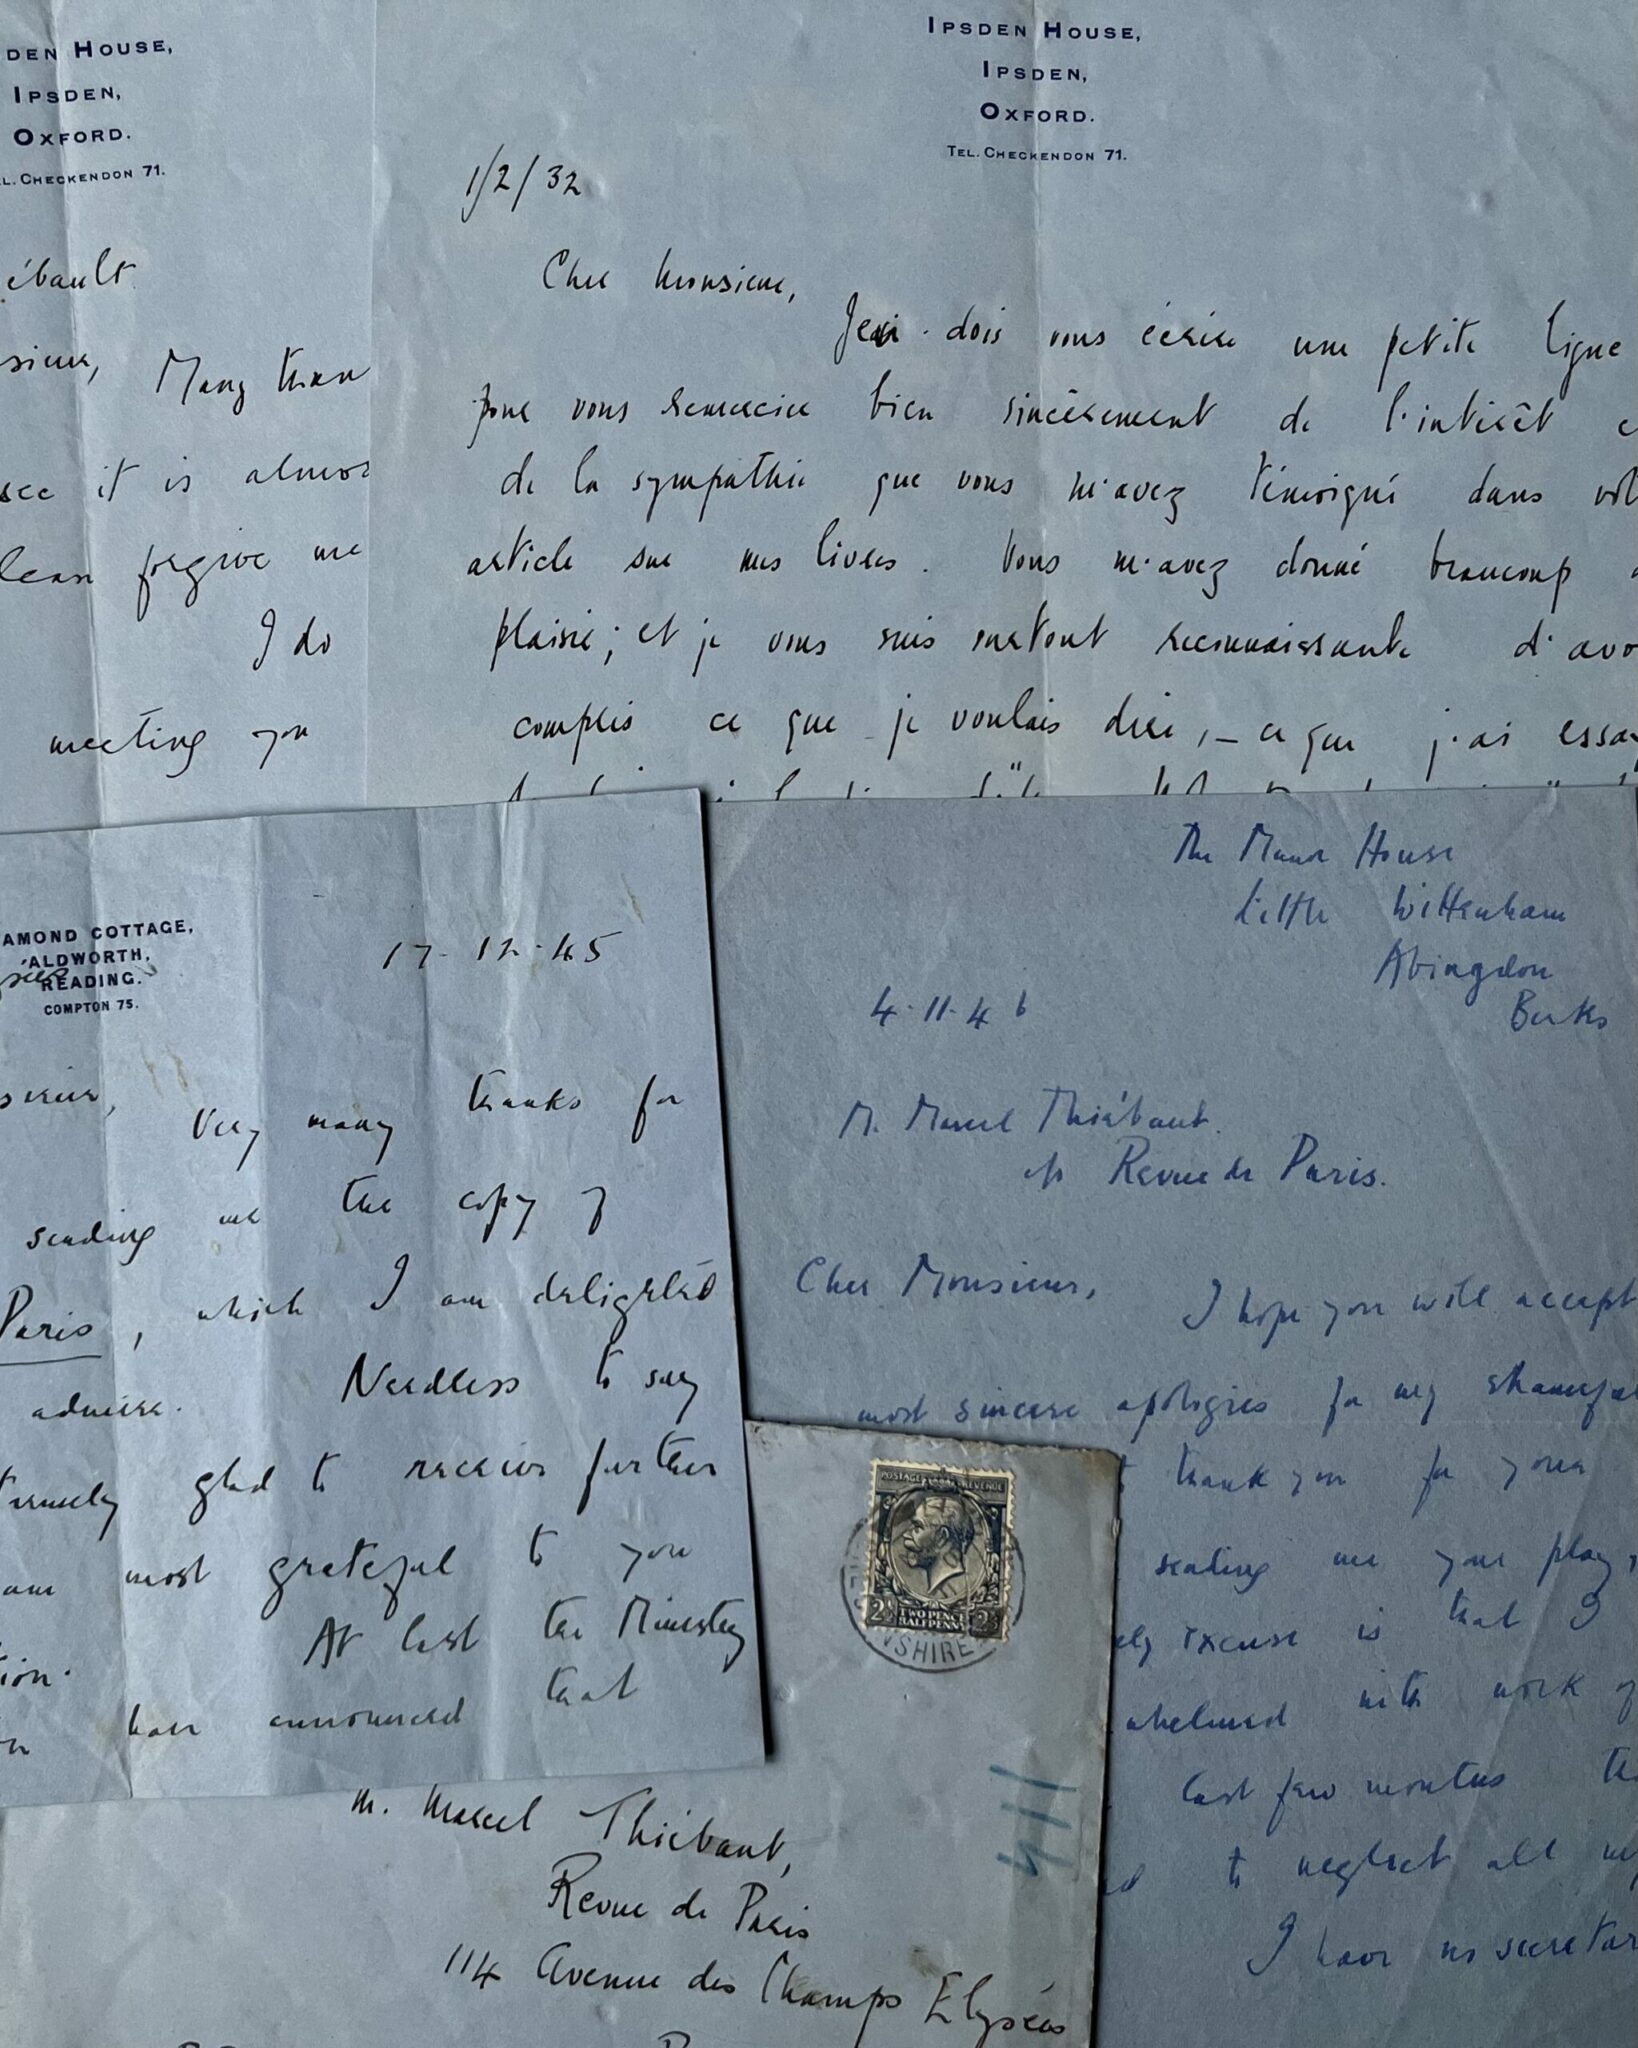 DEN HOUSE,
IPSDEN,
OXFORD.
L. CHECKENDON 71.
ébault
sieur, Many than
see it is almos
lease forgive me
I do
meeting you
IPSDEN HOUSE,
IPSDEN,
OXFORD.
TEL. CHECKENDON 71.
1/2/32
Cher Monsieur,
dois vous écrire une petite ligne
pour vous remercier bien sincèrement de l'intérêt e
de la sympathie que vous m'avez témoigné dans vot
article sur mes livres. Vous m'avez donné beaucoup d
plaisir; et je vous suis surtout reconnaissante d'avo
compris ce que je voulais dire, – ce que j'ai essay
AMOND COTTAGE,
ALDWORTH,
READING.
COMPTON 75.
17-12-45
sieur,
Very many thanks for
sending me the copy of
Paris, which I am delighted
admire. Needless to say
tremely glad to receive further
am most grateful to you
tion. At last the Ministry
have announced that
The Manor House
Little Wittenham
Abingdon
Berks
4-11-46
M. Marcel Thiébaut.
c/o Revue de Paris.
Cher Monsieur,
I hope you will accept
most sincere apologies for my shameful
thank you for your
sending me your play
ely excuse is that I
whelmed with work of
last few months
d to neglect all my
I have no secretar
POSTAGE REVENUE
2½ TWO PENCE HALFPENNY 2½
NSHIRE
114
M. Marcel Thiébaut,
Revue de Paris
114 Avenue des Champs Elysées